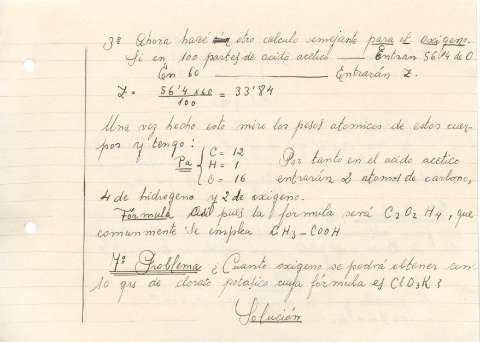 3º Ahora haré otro calculo semejante para el oxígeno.
Si en 100 partes de acido acetico — Entran 56'4 de O.
En 60 — Entrarán Z.
Z = 56'4 x 60 / 100 = 33'84
Una vez hecho esto miro los pesos atomicos de estos cuer-
pos y tengo:
Pa { C = 12
H = 1
O = 16
Por tanto en el acido acetico
entrarán 2 atomos de carbono,
4 de hidrogeno y 2 de oxigeno.
Fórmula Así pues la fórmula será C2O2H4, que
comunmente se emplea CH3-COOH
7º Problema ¿Cuanto oxigeno se podrá obtener con
10 grs de clorato potasico cuya fórmula es ClO3K?
Solución